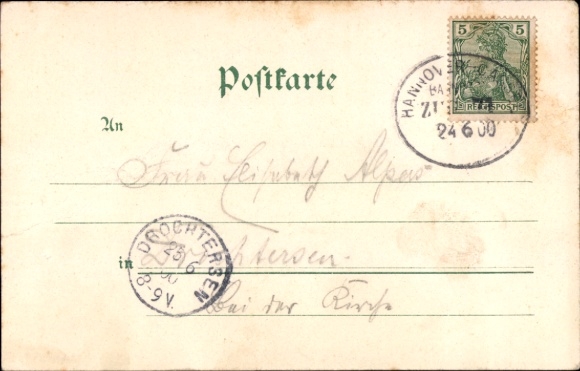 5 5
REICHSPOST
HANNOVER
BA
ZU
24 6 00
Postkarte
An
Frau Elisabeth
DROCHTERSEN
25 6
00
8-9 V.
in Drochtersen.
Bei der Kirche